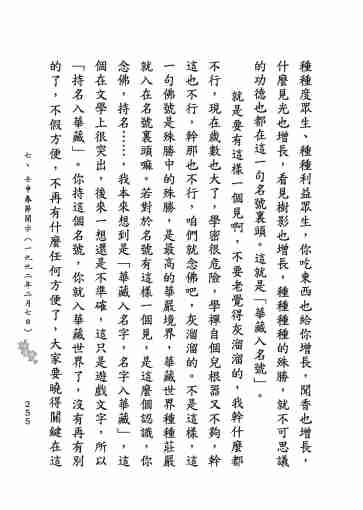 種種度眾生、種種利益眾生，你吃東西也給你增長，聞香也增長，
什麼見光也增長，看見樹影也增長，種種種種的殊勝，就不可思議
的功德也都在這一句名號裏頭。這就是「華藏入名號」。
就是要有這樣一個見啊，不要老覺得灰溜溜的，我幹什麼都
不行，現在歲數也大了，學密很危險，學禪自個兒根器又不夠，幹
這也不行，幹那也不行，咱們就念佛吧，灰溜溜的。不是這樣，這
一句佛號是殊勝中的殊勝，是最高的華嚴境界，華藏世界種種莊嚴
就入在名號裏頭嘛。若對於名號有這樣一個見，是這麼個認識，你
念佛，持名……。我本來想到是「華藏入名字，名字入華藏」，這
個在文學上很突出，後來一想還是不準確，這只是遊戲文字，所以
「持名入華藏」。你持這個名號，你就入華藏世界了，沒有再有別
的了，不假方便，不再有什麼任何方便了，大家要曉得關鍵在這
七、壬申春節開示（一九九二年二月七日）
255